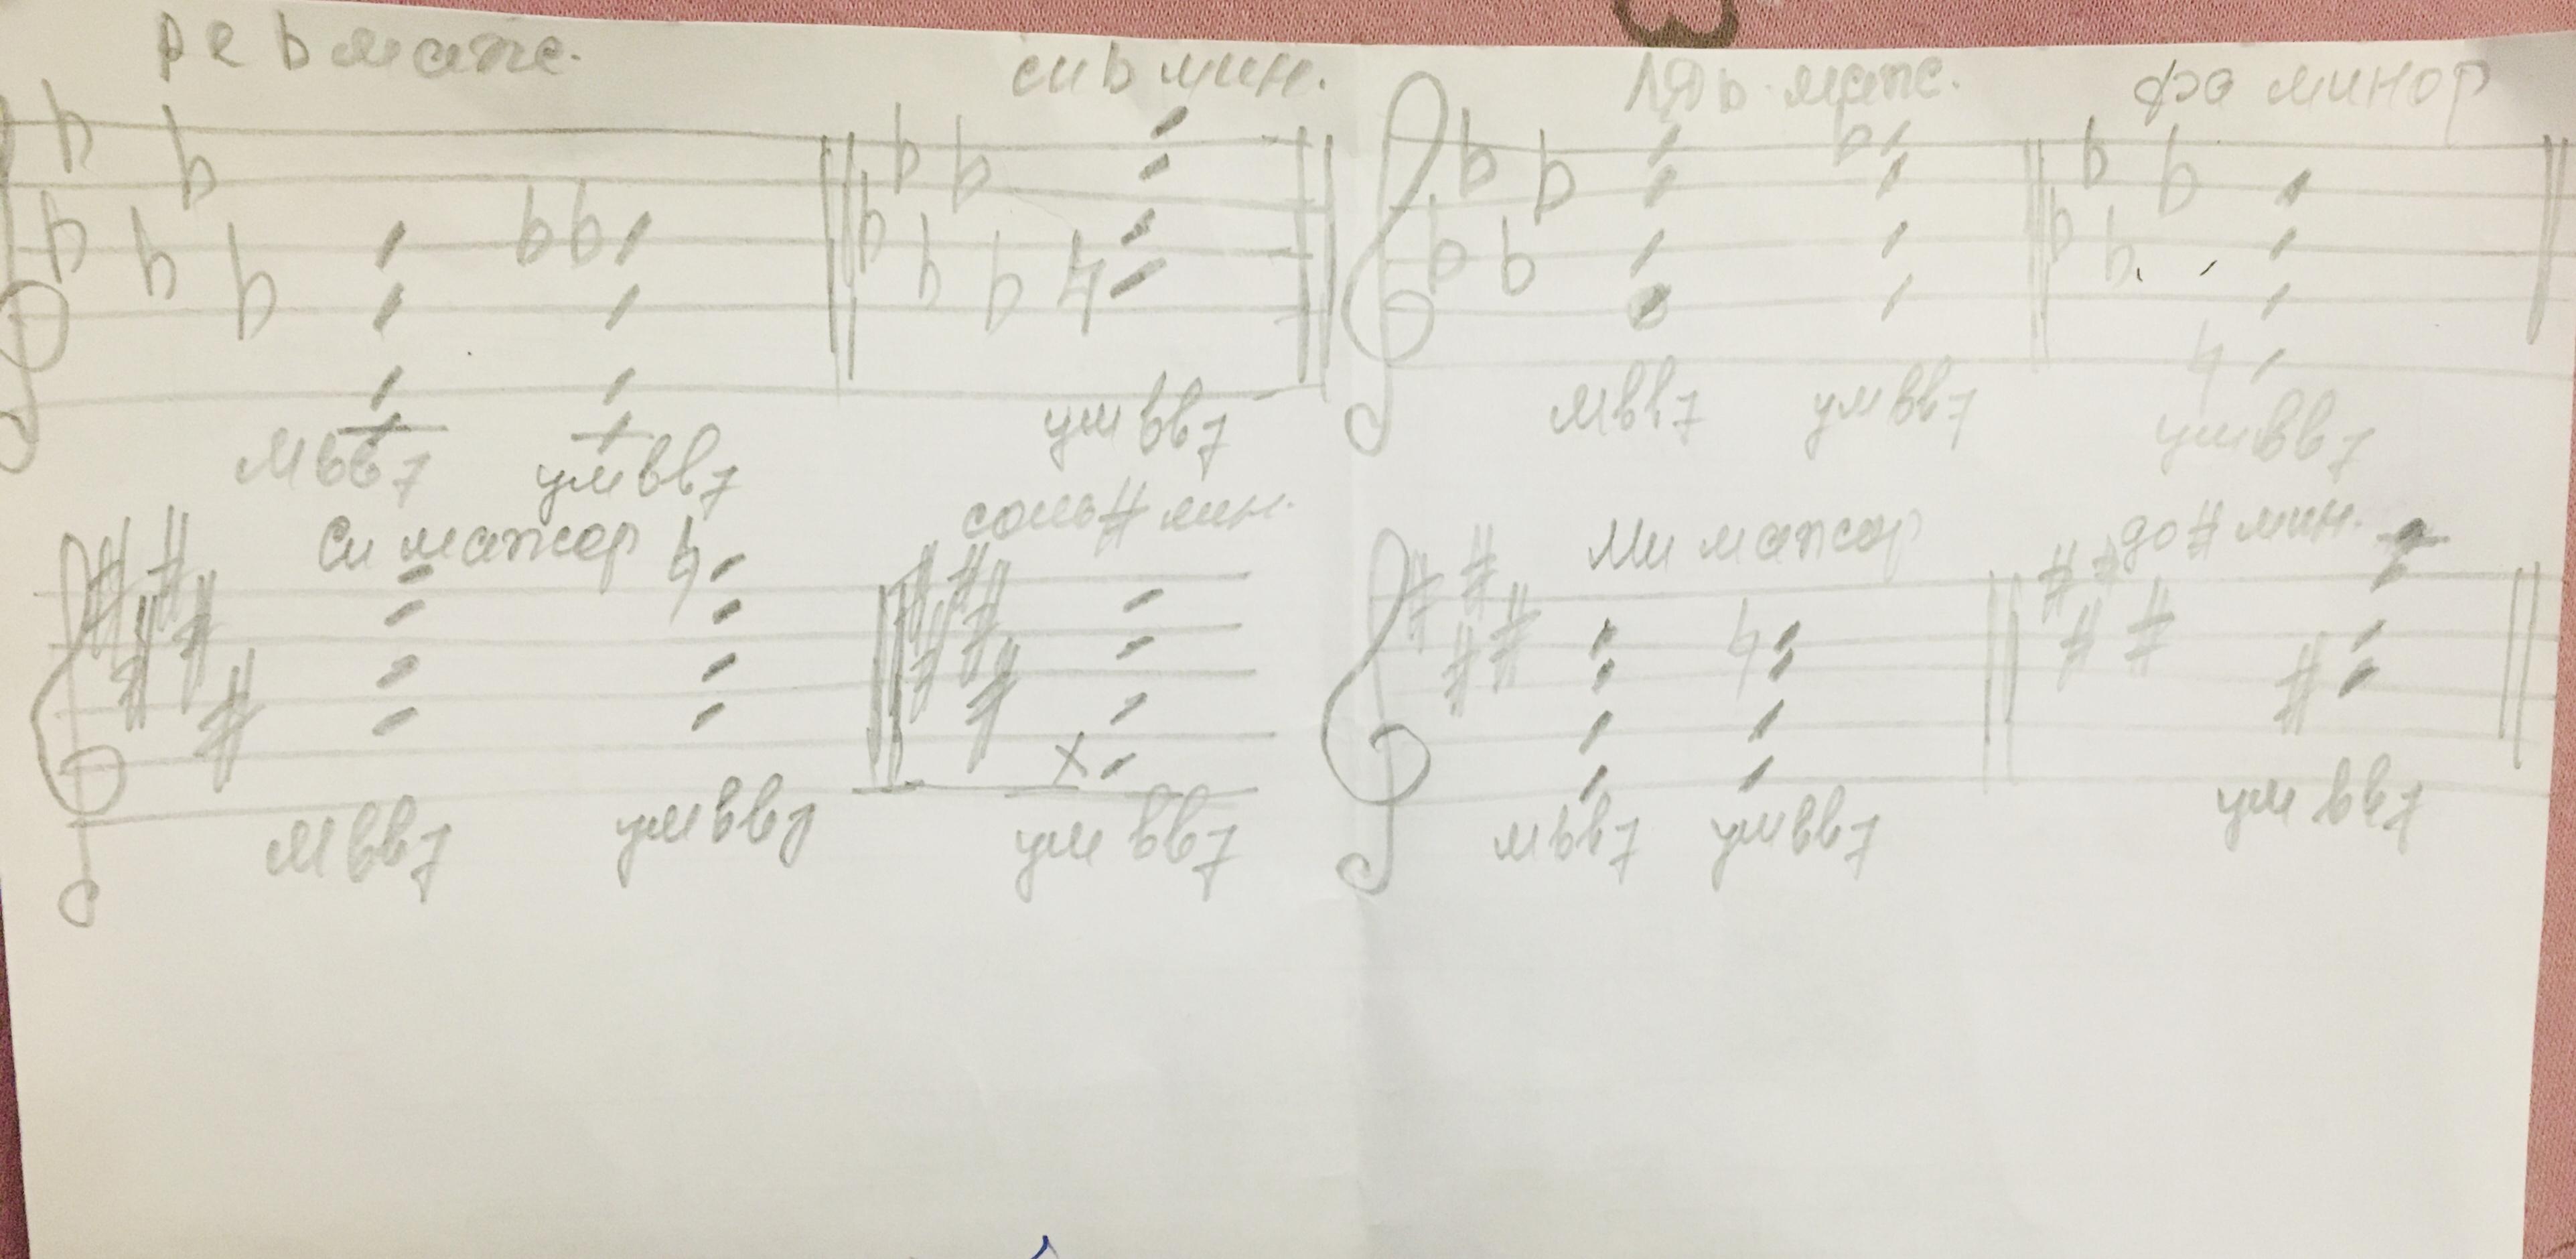 ре b маж. си b мин. ля b маж. фа минор
мвв7 умвв7 умвв7 мвв7 умвв7 умвв7
си мажор соль# мин. Ми мажор до# мин.
мвв7 умвв7 умвв7 мвв7 умвв7 умвв7